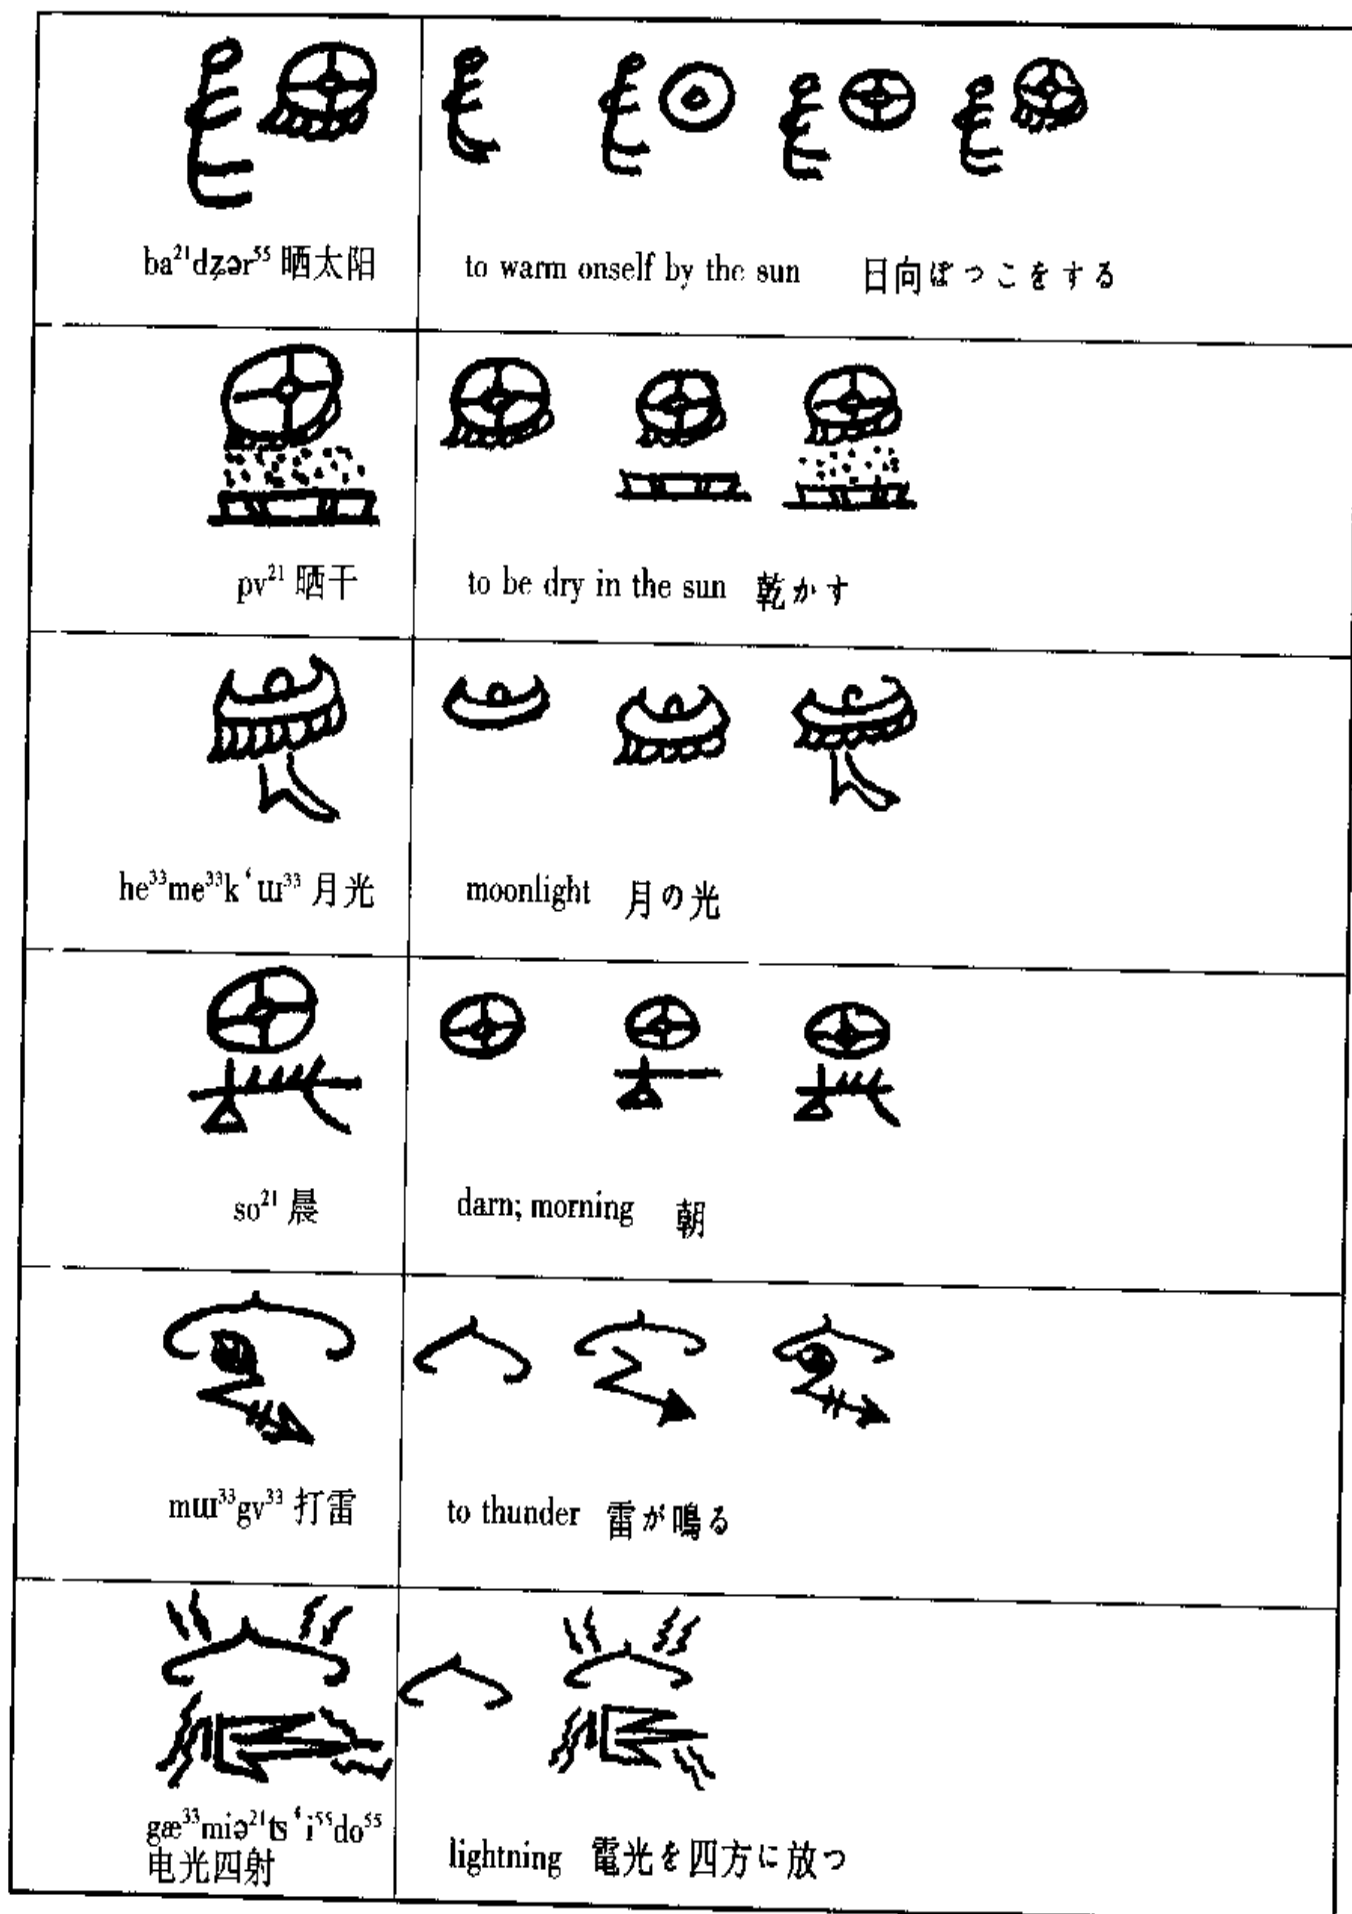 ba²¹dʐər⁵⁵ 晒太阳
to warm onself by the sun 日向ぼっこをする
pv²¹ 晒干
to be dry in the sun 乾かす
he³³me³³k‘ɯ³³ 月光
moonlight 月の光
so²¹ 晨
darn; morning 朝
mɯ³³gv³³ 打雷
to thunder 雷が鳴る
gæ³³miə²¹ts‘i⁵⁵do⁵⁵
电光四射
lightning 電光を四方に放つ